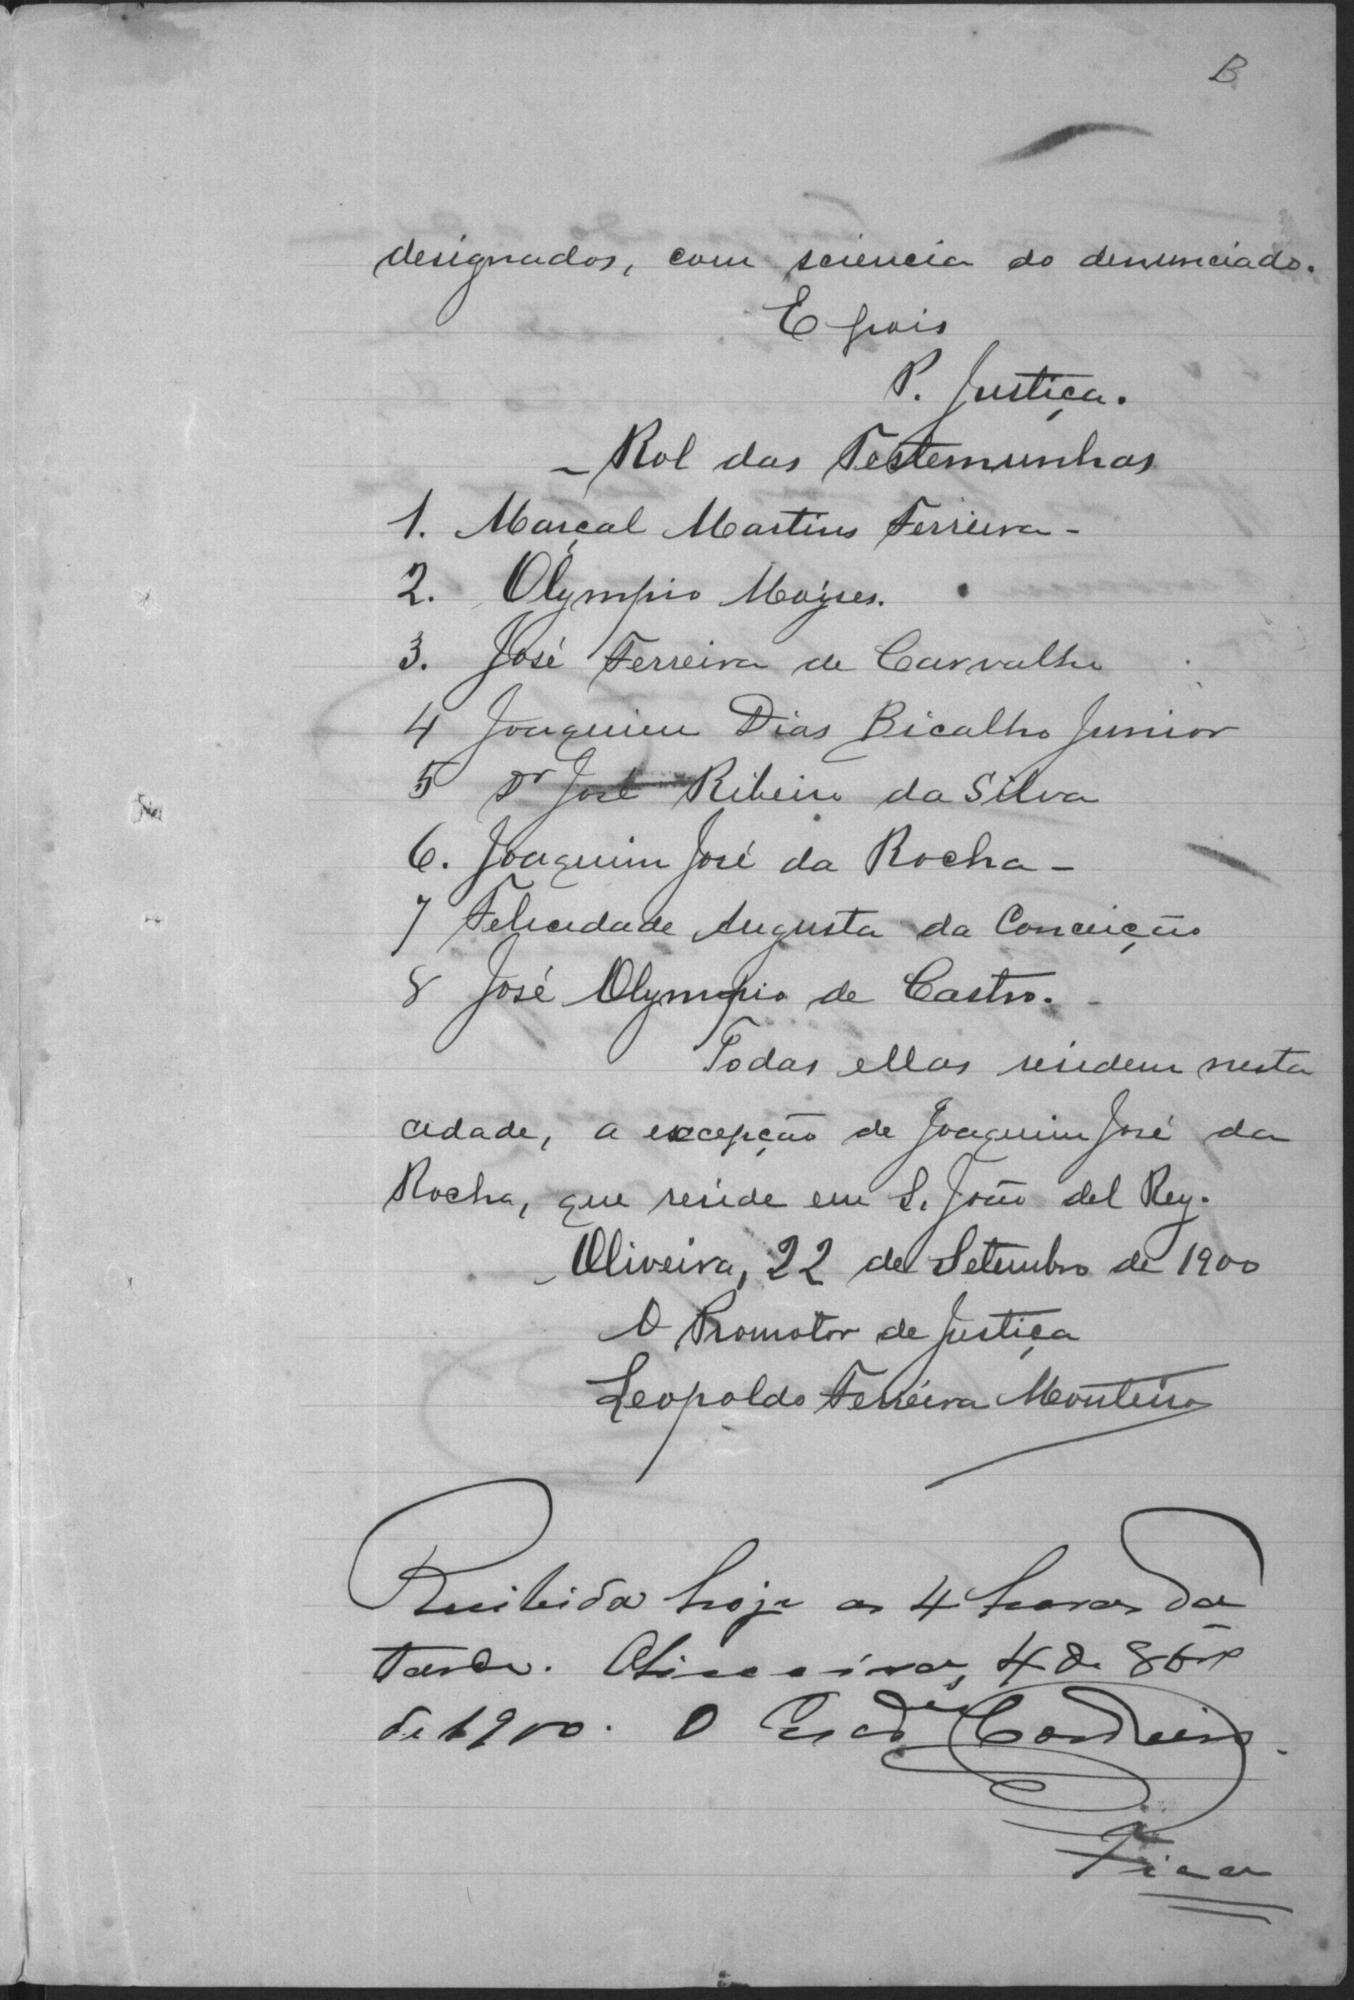 B
designados, com sciencia do denunciado.
E pois
P. Justiça.
Rol das Testemunhas
1. Marçal Martins Ferreira -
2. Olympio Moÿses.
3. José Ferreira de Carvalho
4 Joaquim Dias Bicalho Junior
5 Dr José Ribeiro da Silva
6. Joaquim José da Rocha -
7 Felicidade Augusta da Conceição
8 José Olympio de Castro.
Todas ellas residem nesta
cidade, a excepção de Joaquim José da
Rocha, que reside em S. João del Rey.
Oliveira, 22 de Setembro de 1900
O Promotor de Justiça
Leopoldo Ferreira Monteiro
Recibida hoje as 4 horas da
tarde. Oliveira, 4 de 8brº
de 1900. O Escr Cordeiro.